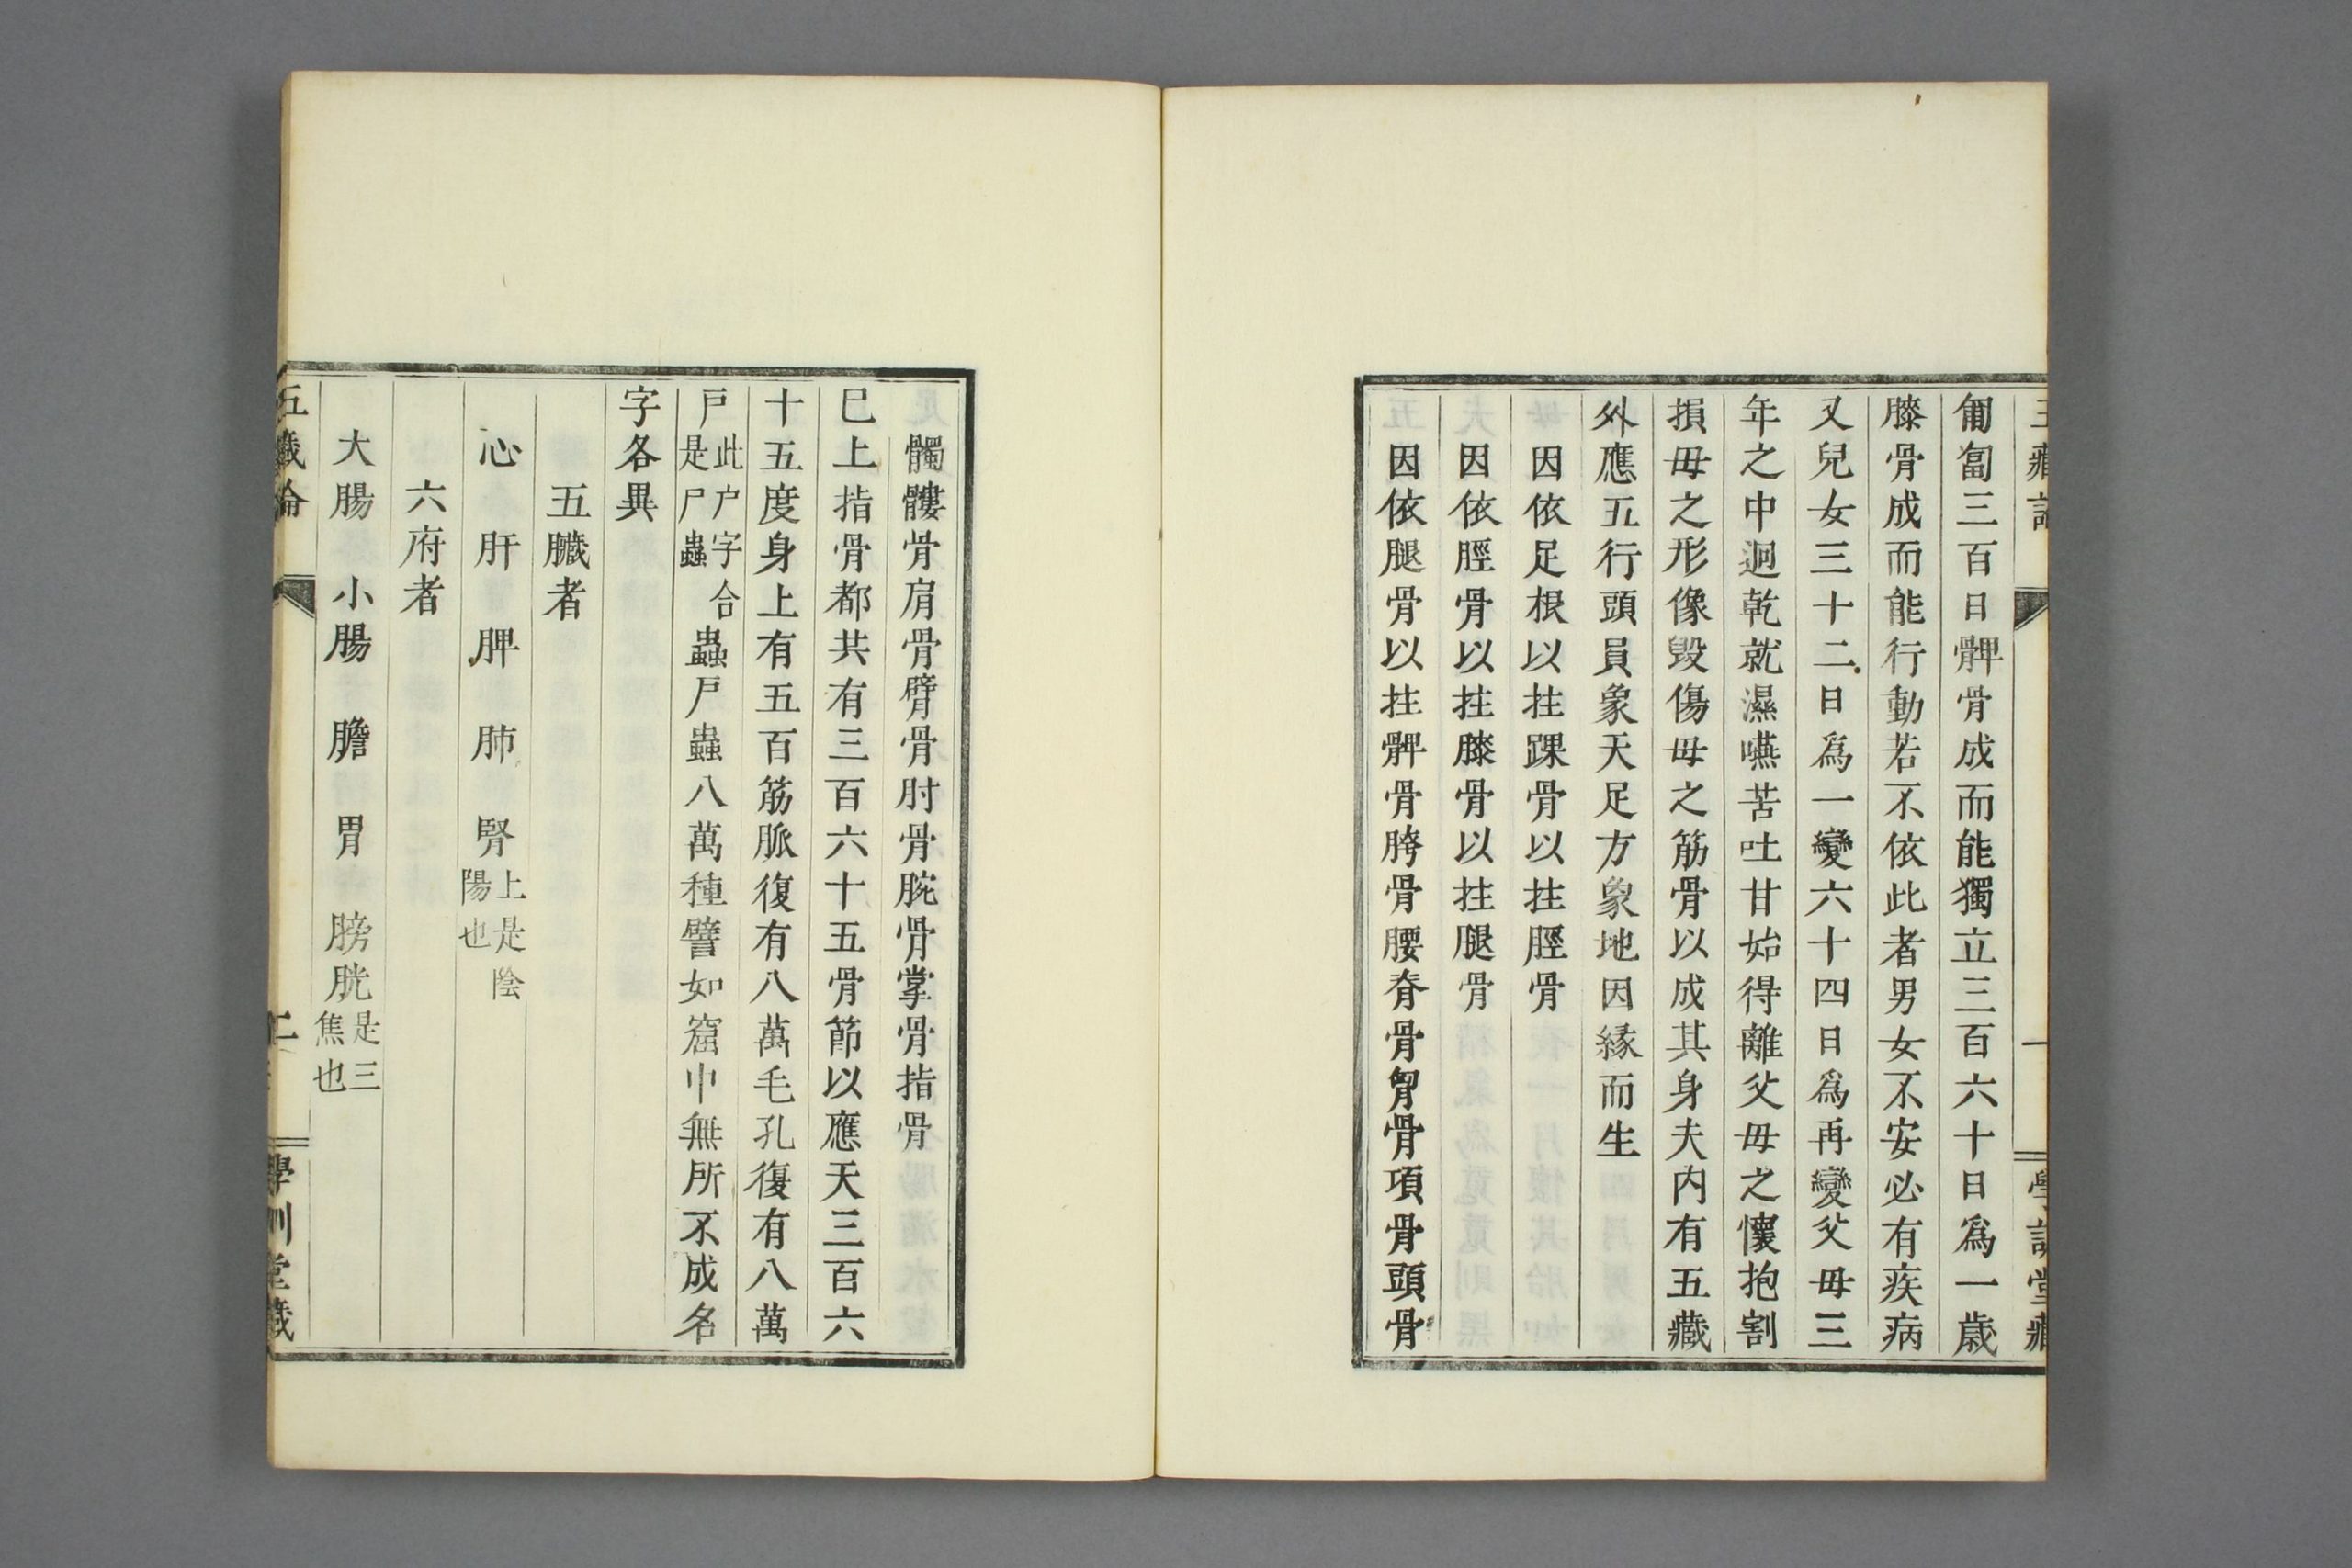 匍匐三百日髀骨成而能獨立三百六十日爲一歳
膝骨成而能行動若不依此者男女不安必有疾病
又兒女三十二日爲一變六十四日爲再變父母三
年之中迴乾就濕嚥苦吐甘始得離父母之懷抱割
損母之形像毀傷母之筋骨以成其身夫内有五藏
外應五行頭員象天足方象地因緣而生
因依足根以拄踝骨以拄脛骨
因依脛骨以拄膝骨以拄腿骨
因依腿骨以拄髀骨胯骨腰脊骨胷骨項骨頭骨
髑髏骨肩骨臂骨肘骨腕骨掌骨指骨
巳上指骨都共有三百六十五骨節以應天三百六
十五度身上有五百筋脈復有八萬毛孔復有八萬
戸此户字合是尸蟲蟲戸蟲八萬種譬如窟中無所不成名
字各異
五臟者
心肝脾肺腎上是陰陽也
六府者
大腸小腸膽胃膀胱是三焦也
五藏論
二
學訓堂藏